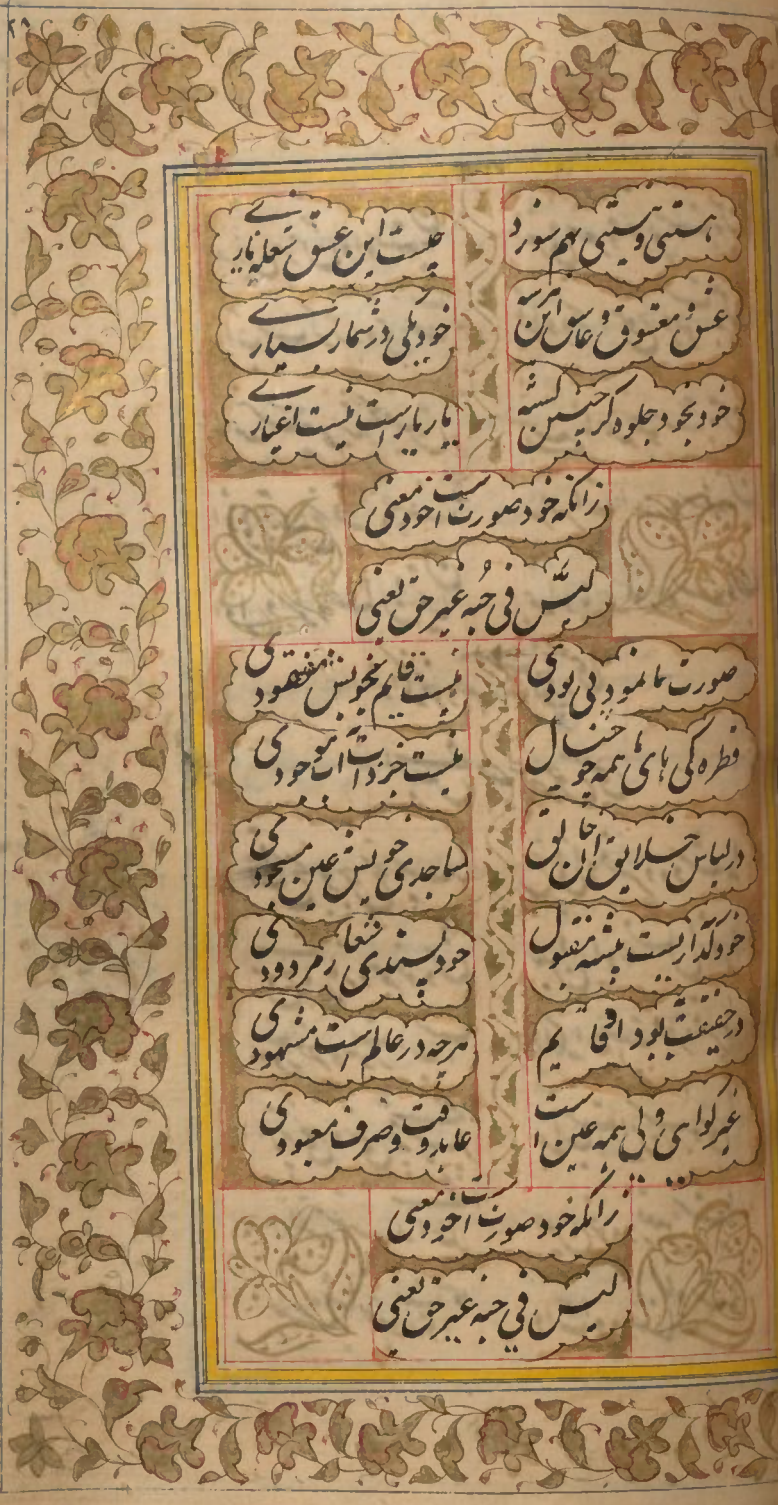 ۲۸
هستی و نیستی بهم سوزد
چیست این عشق شعله ناری
عشق و معشوق و عاشق این هر سه
خود یکی در شمار بسیاری
خود بخود جلوه گر حسین گشته
یار یار است نیست اغیاری
زانکه خود صورت است خود معنی
لیس فی جبه غیر حق یعنی
صورت ما نمود بی بودی
نیست قایم بخویش مفقودی
قطره کی های های همه جو
نیست جز ذات آب موجودی
در لباس خلایق آن خالق
ساجدی خویش عین مسجودی
خود گداز یست پیشه مقبول
خود پسندی شعار مردودی
در حقیقت بود قایم
هر چه در عالم است مشهودی
غیر گو ای ولی همه عین است
عابد وقت و صرف معبودی
زانکه خود صورت است خود معنی
لیس فی جبه غیر حق یعنی